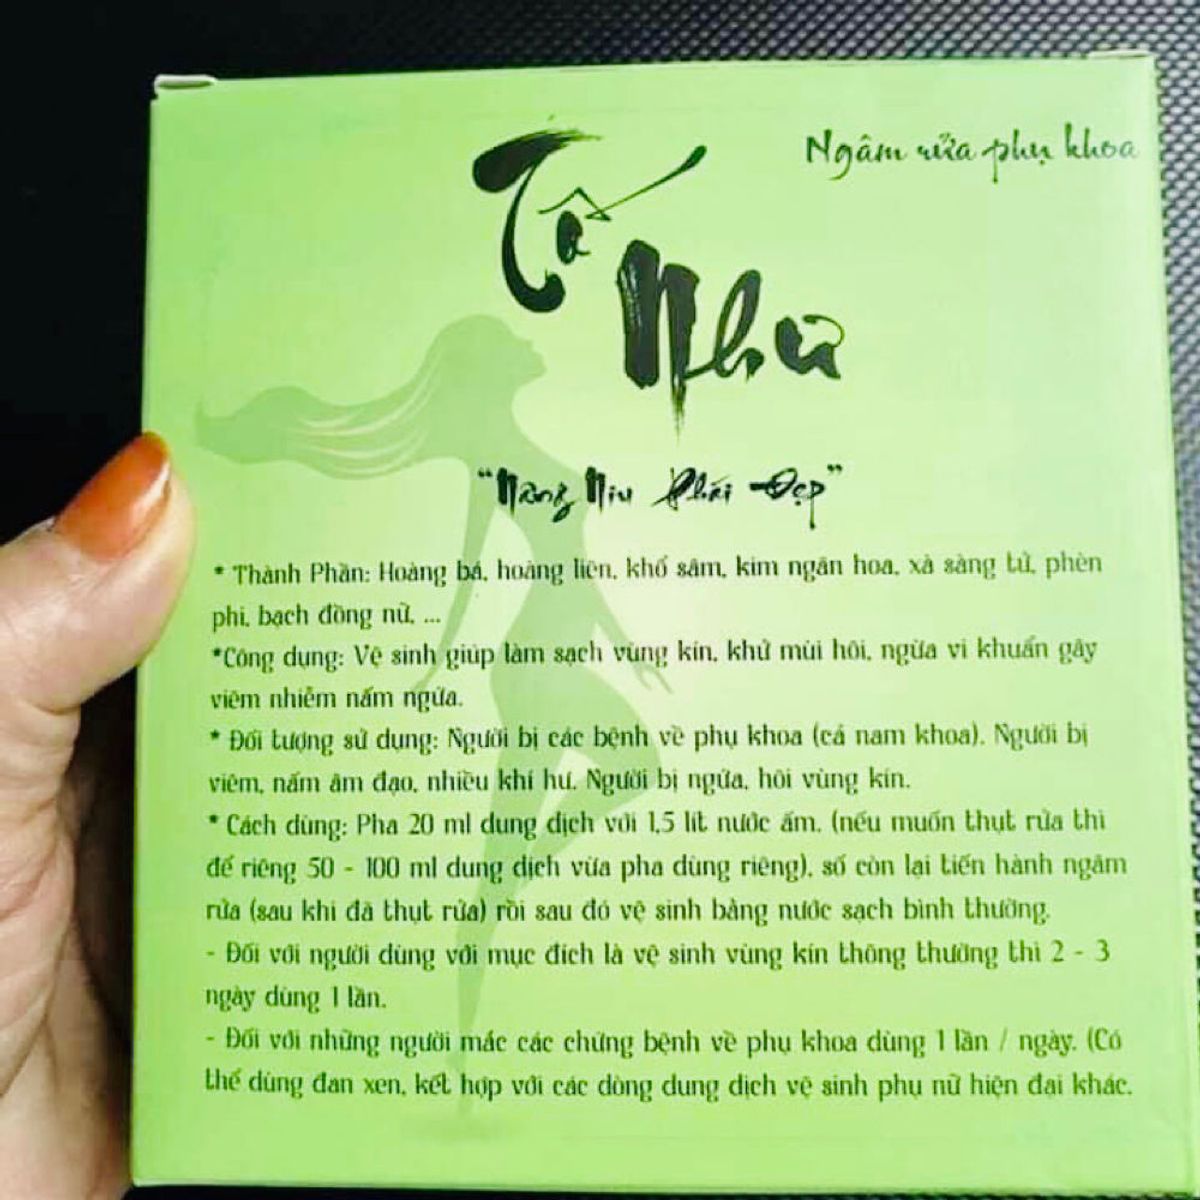 Ngâm rửa phụ khoa
Tố
Như
"Nâng Niu Phái Đẹp"
* Thành Phần: Hoàng bá, hoàng liên, khổ sâm, kim ngân hoa, xà sàng tử, phèn
phi, bạch đồng nữ, ...
*Công dụng: Vệ sinh giúp làm sạch vùng kín, khử mùi hôi, ngừa vi khuẩn gây
viêm nhiễm nấm ngứa.
* Đối tượng sử dụng: Người bị các bệnh về phụ khoa (cả nam khoa). Người bị
viêm, nấm âm đạo, nhiều khí hư. Người bị ngứa, hôi vùng kín.
* Cách dùng: Pha 20 ml dung dịch với 1,5 lít nước ấm, (nếu muốn thụt rửa thì
để riêng 50 - 100 ml dung dịch vừa pha dùng riêng), số còn lại tiến hành ngâm
rửa (sau khi đã thụt rửa) rồi sau đó vệ sinh bằng nước sạch bình thường.
- Đối với người dùng với mục đích là vệ sinh vùng kín thông thường thì 2 - 3
ngày dùng 1 lần.
- Đối với những người mắc các chứng bệnh về phụ khoa dùng 1 lần / ngày. (Có
thể dùng đan xen, kết hợp với các dòng dung dịch vệ sinh phụ nữ hiện đại khác.